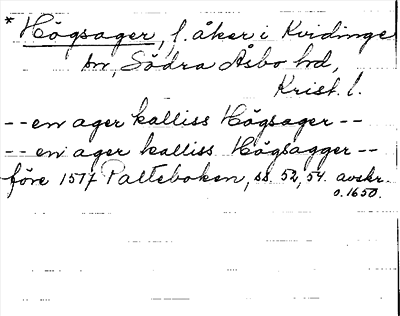 * Högsager, f. åker i Kvidinge
sn, Södra Åsbo hd,
Krist. l.
-- en ager kalliss Högsager --
-- en ager kalliss Högsagger --
före 1517 Palteboken, ss. 52, 54. avskr.
o. 1650.